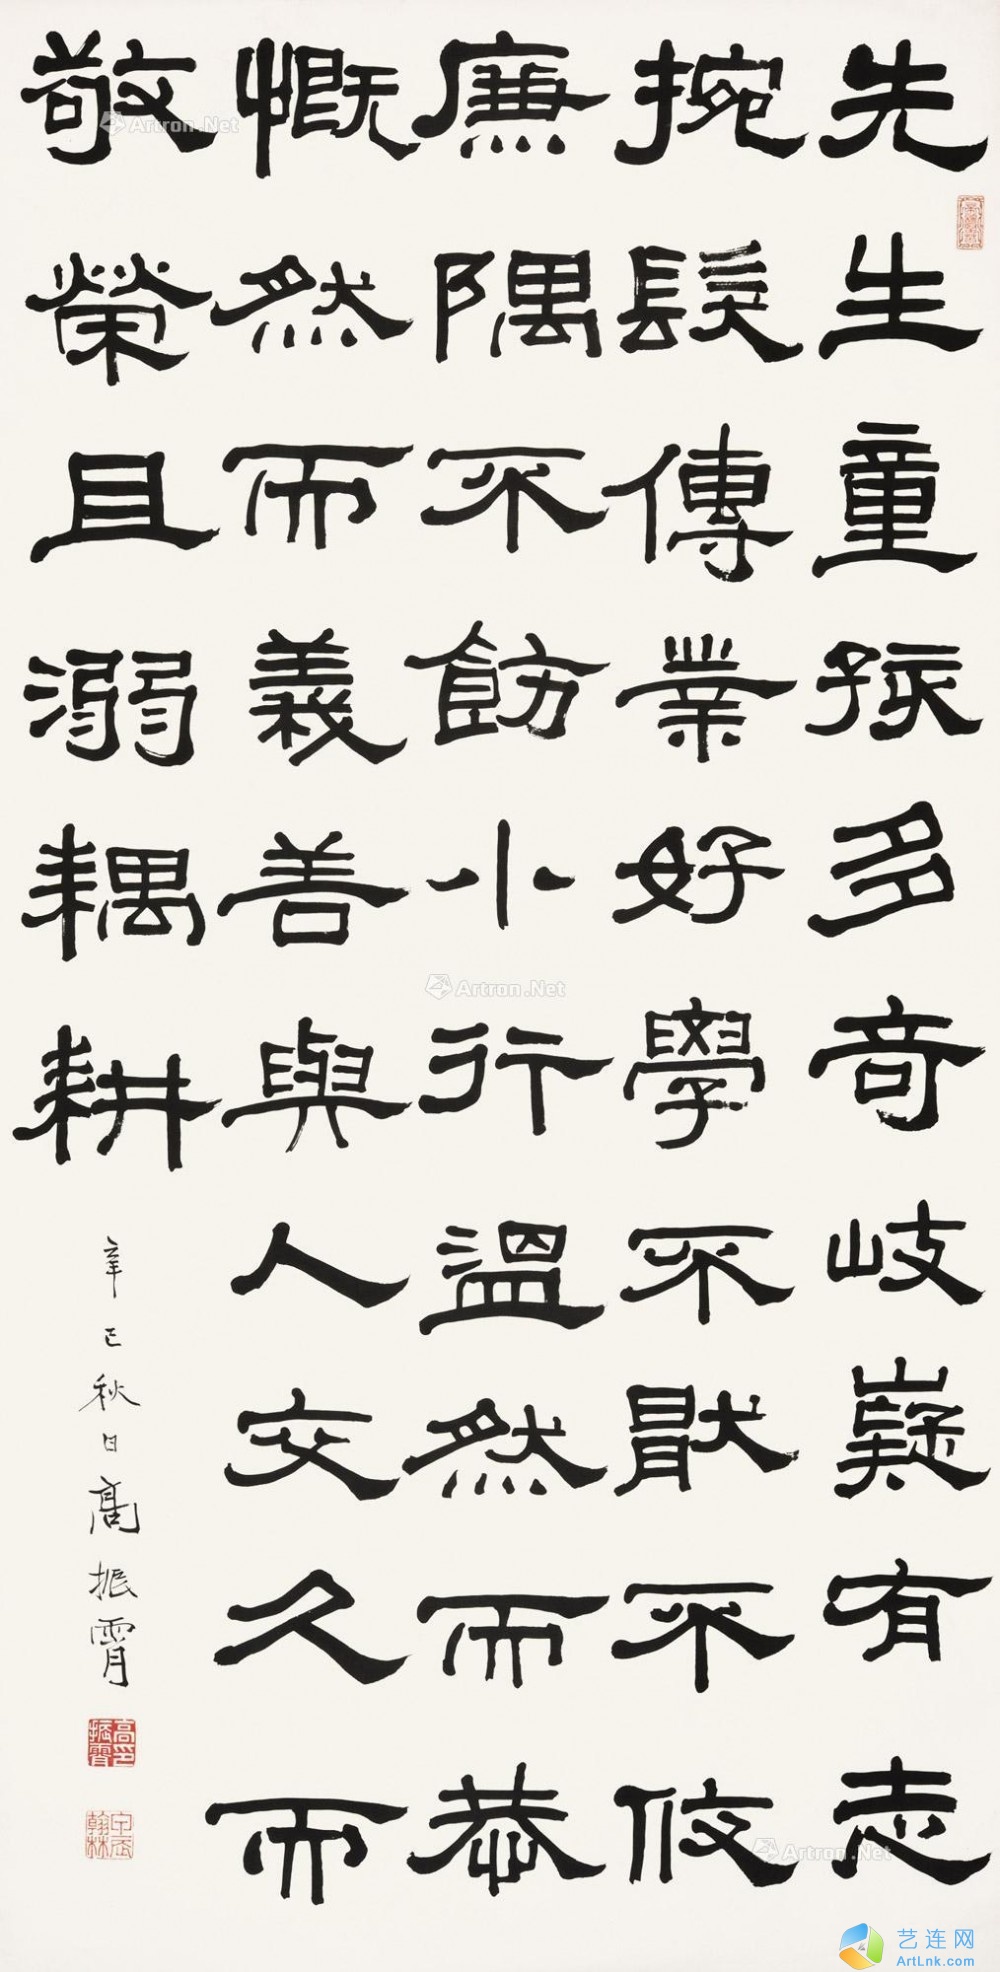 先生童孩多奇岐嶷有志
捥髮傳業好學不猒不攸
廉隅不飭小行溫然而恭
慨然而義善與人交久而
敬榮且溺耦耕
辛巳秋日高振霄
高振霄印
翰林
Artron.Net
Artron.Net
Artron.Net
艺连网
ArtLnk.com